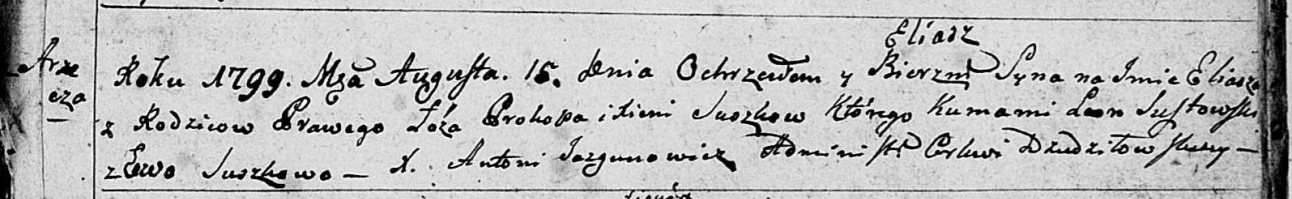 Eliasz
Arze
cza
Roku 1799. Mca Augusta. 15. dnia Ochrzciłem y Bierzm Syna na Imie Eliasza
z Rodzicow Prawego Łoża Prokopa i Xieni Suszkow Którego Kumami Leon Sustowski
z Ewo Suszkowo — X. Antoni Jazgunowicz Administr Cerkwi Dziedziłowskiey —